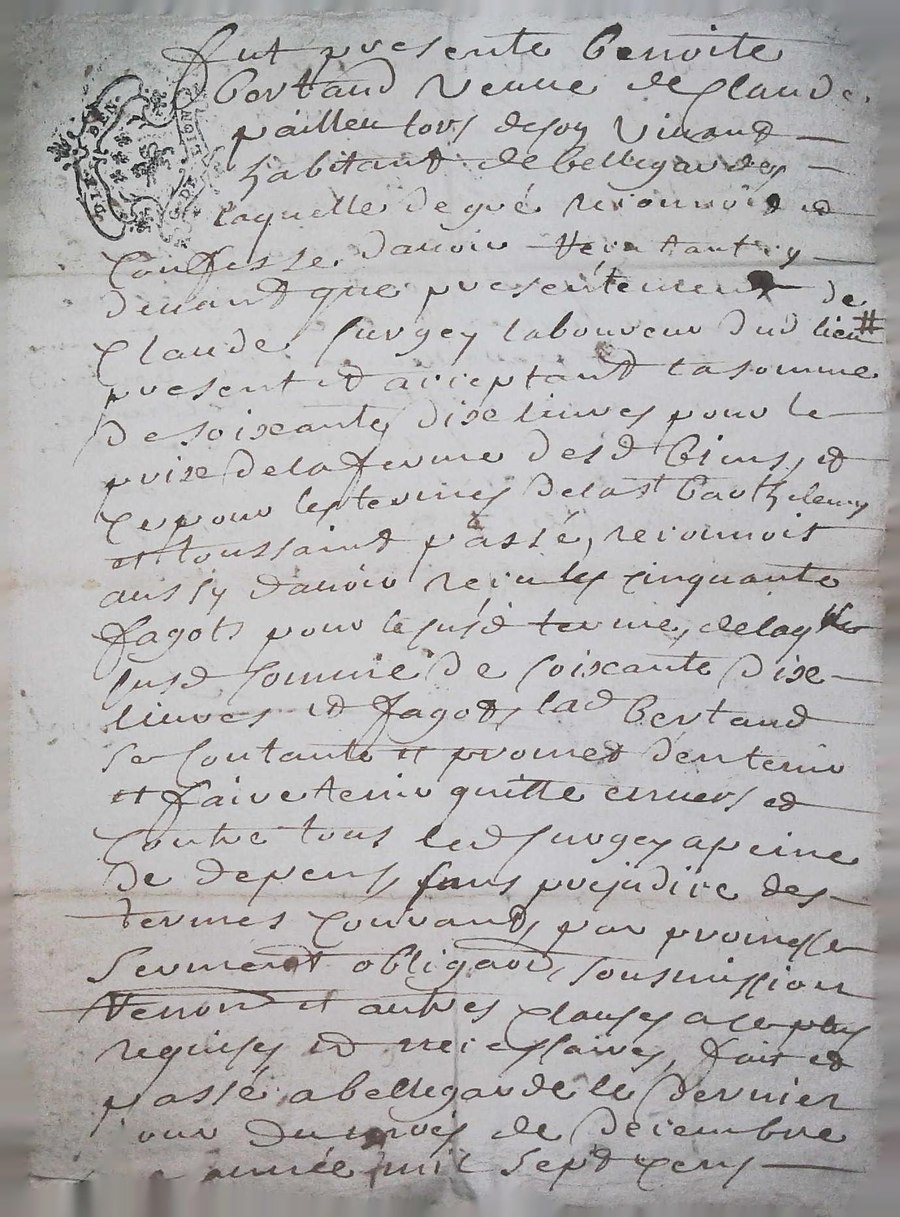 fut presente benoite
Bertrand veuve de Claude
habitant de bellegardes
laquelle de gré reconnoit et
Confesse davoir tant cy
devant que presentement de
Claude Surgey laboureur dud lieu #
present et acceptant la somme
de soixante dixe livres pour le
prix de la ferme desd biens, et
ce pour les termes de la st barthelemy
et toussaint passé, reconnoit
aussy davoir receu les cinquante
fagots pour le susd terme, de laq
susd somme de soixante dixe
livres et fagots lad Bertand
se contante et promet den tenir
et faire tenir quitte envers et
contre tous led surgey a peine
de depens, sans prejudice des
termes courands, par promesse
serment obligaon, sousmission
renon et autres clauses a ce plus
requises et necessaires, fait et
passé a bellegarde le dernier
jour du mois de decembre
année mil sept cens